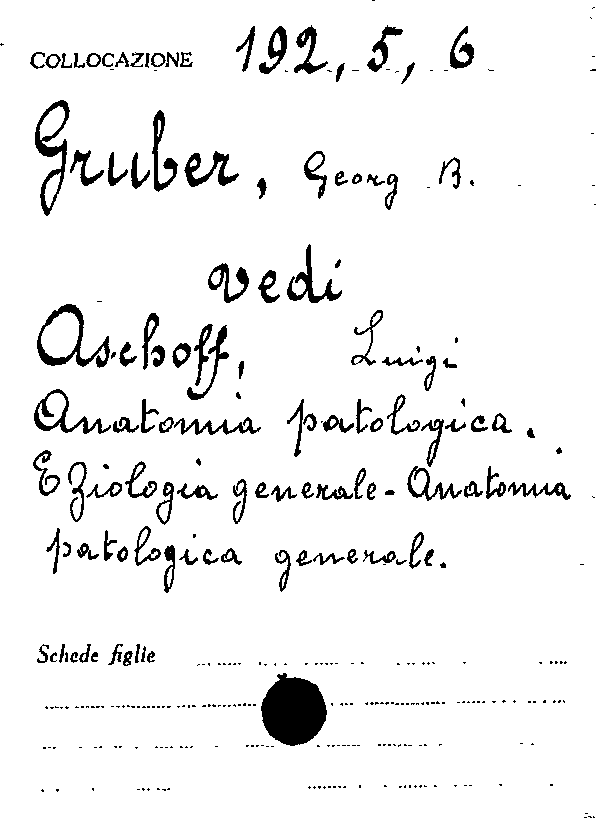 COLLOCAZIONE 192, 5, 6
Gruber, Georg B.
vedi
Aschoff, Luigi
Anatomia patologica.
Eziologia generale - Anatomia
patologica generale.
Schede figlie